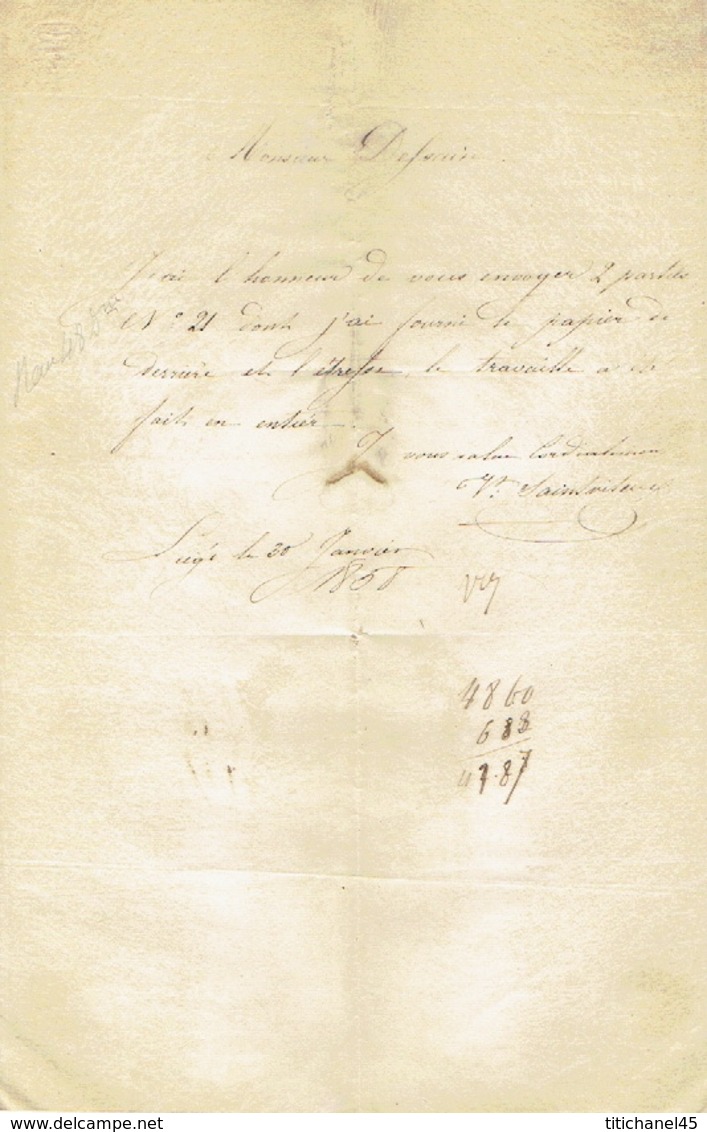 Monsieur Dessain.
J'ai l'honneur de vous envoyer 2 parties
N° 21 dont j'ai fourni le papier de
derrière et l' le travaille a été
fait en entier.
Je vous salue Cordialement
Liége le 30 Janvier
1858
4860
688
delcampe.net
titichanel45